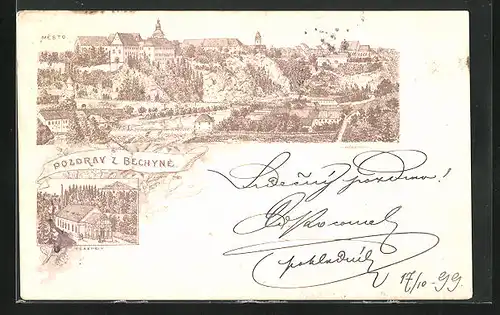 MĚSTO.
POZDRAV Z BECHYNĚ.
Srdečný pozdrav!
pokladník
17/10 - 99